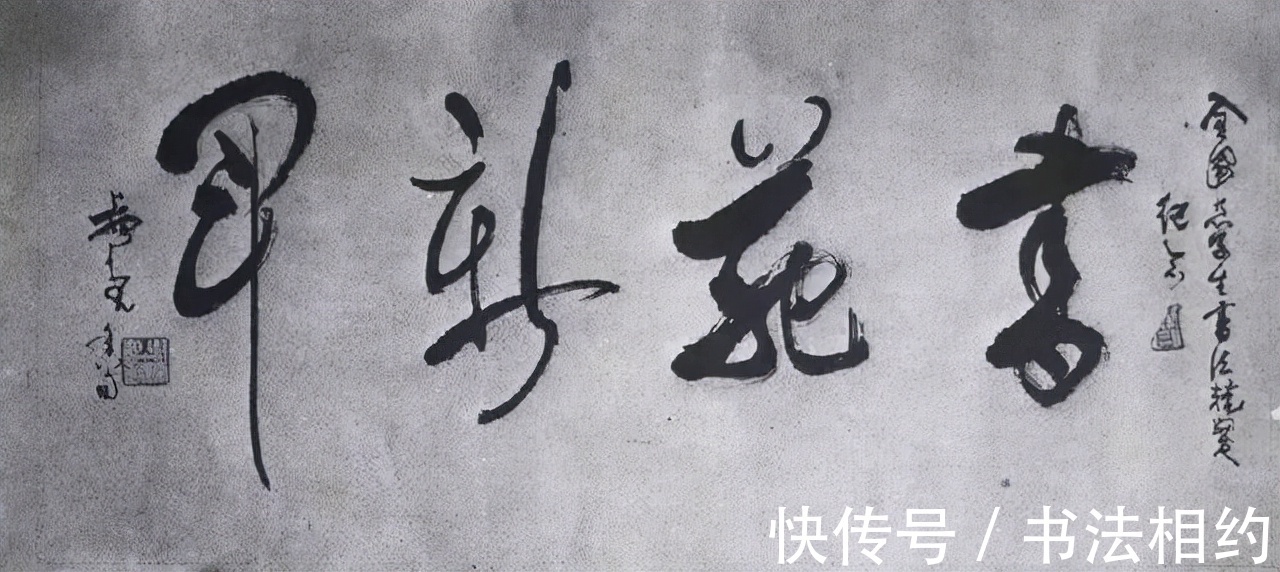 全國大学生書法競賽
紀念
書苑新軍
快传号 / 书法相约